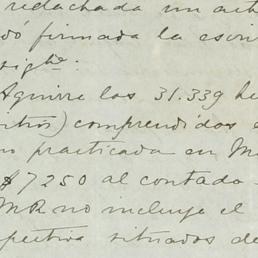 redachada un act
dó firmada la escri
right.
Aguirre las 31.339 he
itios) comprendidos e
on practicada en M
$7250 al contado
MR no incluye el
pectiva situados de